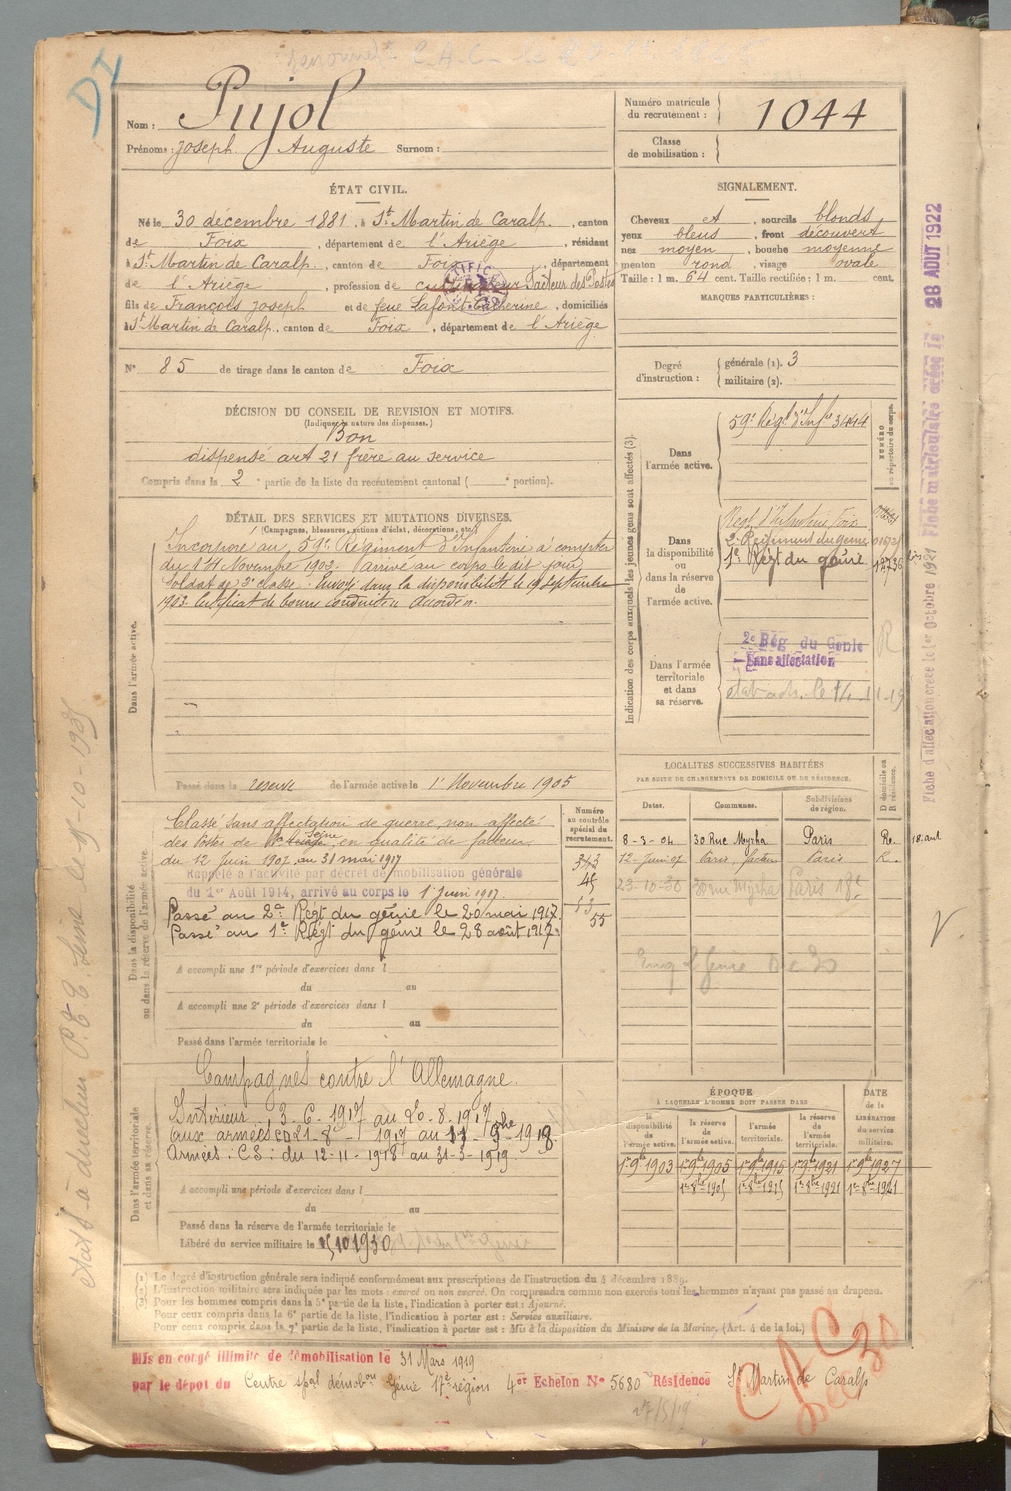 DI
Nom : Pujol
Prénoms : Joseph Auguste Surnom :
Numéro matricule du recrutement : 1044
Classe de mobilisation :
ÉTAT CIVIL.
Né le 30 décembre 1881, à St. Martin de Caralp, canton
de Foix, département de l'Ariège, résidant
à St. Martin de Caralp, canton de Foix, département
de l'Ariège, profession de cultivateur Facteur des Postes
fils de François Joseph et de feue Lafont Catherine, domiciliés
à St. Martin de Caralp, canton de Foix, département de l'Ariège
N° 85 de tirage dans le canton de Foix
SIGNALEMENT.
Cheveux et, sourcils blonds
yeux bleus, front découvert
nez moyen, bouche moyenne
menton rond, visage ovale
Taille : 1 m. 64 cent. Taille rectifiée : 1 m. cent.
MARQUES PARTICULIÈRES :
Degré d'instruction : générale (1). 3
militaire (2).
DÉCISION DU CONSEIL DE REVISION ET MOTIFS.
(Indiquer la nature des dispenses.)
Bon
dispensé art 21 frère au service
Compris dans la 2e partie de la liste du recrutement cantonal ( e portion).
DÉTAIL DES SERVICES ET MUTATIONS DIVERSES.
(Campagnes, blessures, actions d'éclat, décorations, etc.)
Dans l'armée active.
Incorporé au 59e Régiment d'Infanterie à compter
du 14 Novembre 1902. arrivé au corps le dit jour
soldat de 2e classe. Envoyé dans la disponibilité le 19 Septembre
1903. Certificat de bonne conduite accordé.
Passé dans la reserve de l'armée active le 1er Novembre 1905
Indication des corps auxquels les jeunes gens sont affectés (3).
NUMÉRO au répertoire du corps.
Dans l'armée active.
59e Régt d'Infie 3414
Dans la disponibilité ou dans la réserve de l'armée active.
Regt d'Infanterie Foix
2e Régiment du génie
1er Régt du génie 12736 bis
Dans l'armée territoriale et dans sa réserve.
2e Rég du Génie
Sans affectation
R
LOCALITÉS SUCCESSIVES HABITÉES
PAR SUITE DE CHANGEMENTS DE DOMICILE OU DE RÉSIDENCE.
Dates. Communes. Subdivisions de région. D domicile ou R résidence.
8-3-04 30 Rue Myrha Paris Re. 18. art
12-Juin 07 Paris, facteur Paris R.
23-10-30 30 rue Myrha Paris 18e
Dans la disponibilité ou dans la réserve de l'armée active.
Numéro au contrôle spécial du recrutement.
343
45
13
55
Classé sans affectation de guerre, non affecté
des Postes de Seine, en qualité de facteur
du 12 Juin 1907 au 31 mai 1917
Rappelé à l'activité par décret de mobilisation générale
du 1er Août 1914, arrivé au corps le 1er Juin 1917.
Passé au 2e Régt du génie le 20 mai 1917.
Passé au 1er Régt du génie le 28 août 1917.
A accompli une 1re période d'exercices dans l
du au
A accompli une 2e période d'exercices dans l
du au
Passé dans l'armée territoriale le
Dans l'armée territoriale et dans sa réserve.
Campagnes contre l'Allemagne.
Intérieur : 3-6-1917 au 20-8-1917
aux armées CD 21-8-1917 au 11 9bre 1918
Armées : CS : du 12-11-1918 au 31-3-1919
A accompli une période d'exercices dans l
du au
Passé dans la réserve de l'armée territoriale le
Libéré du service militaire le 15 10 1930
ÉPOQUE
À LAQUELLE L'HOMME DOIT PASSER DANS
la disponibilité de l'armée active.
la réserve de l'armée active.
l'armée territoriale.
la réserve de l'armée territoriale.
DATE de la LIBÉRATION du service militaire.
1er 9bre 1903 1er 9bre 1905 1er 9bre 1915 1er 9bre 1921 1er 9bre 1927
1er 8bre 1905 1er 8bre 1915 1er 8bre 1921
(1) Le degré d'instruction générale sera indiqué conformément aux prescriptions de l'instruction du 4 décembre 1889.
(2) L'instruction militaire sera indiquée par les mots : exercé ou non exercé. On comprendra comme non exercés tous les hommes n'ayant pas passé au drapeau.
(3) Pour les hommes compris dans la 5e partie de la liste, l'indication à porter est : Ajourné.
Pour ceux compris dans la 6e partie de la liste, l'indication à porter est : Services auxiliaire.
Pour ceux compris dans la 7e partie de la liste, l'indication à porter est : Mis à la disposition du Ministre de la Marine. (Art. 4 de la loi.)
Mis en congé illimité de démobilisation le 31 Mars 1919
par le dépôt du Centre spal démobon Génie 17e région 4er Echelon N° 5680 Résidence St Martin de Caralp
27/5/19
CAC 30
Fiche d'affectation créée le 1er Octobre 1921 Fiche matriculaire créée le 28 AOUT 1922